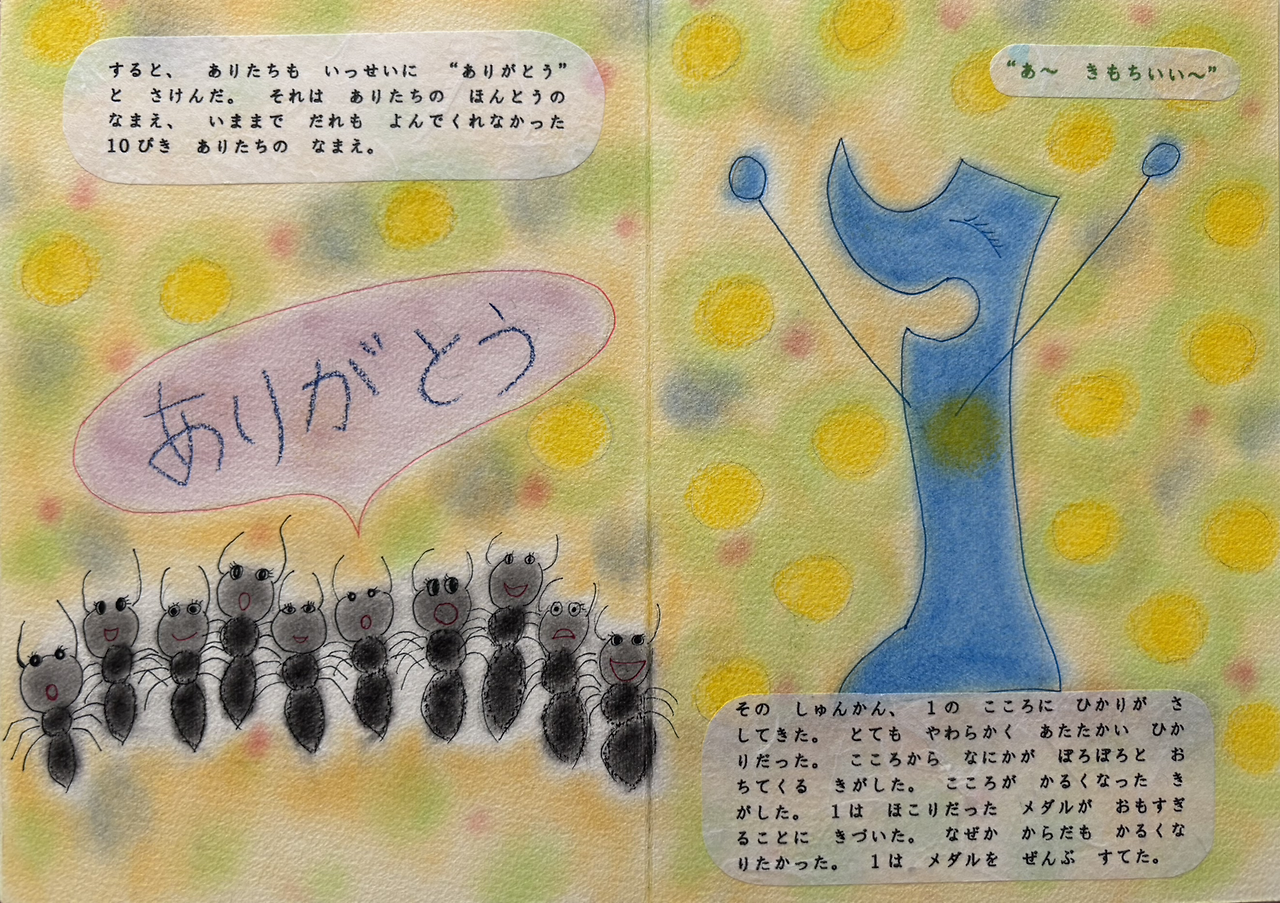 すると、　ありたちも　いっせいに　“ありがとう”
と　さけんだ。　それは　ありたちの　ほんとうの
なまえ、　いままで　だれも　よんでくれなかった
10ぴき　ありたちの　なまえ。
ありがとう
“あ〜　きもちいい〜”
その　しゅんかん、　1の　こころに　ひかりが　さ
してきた。　とても　やわらかく　あたたかい　ひか
りだった。　こころから　なにかが　ぽろぽろと　お
ちてくる　きがした。　こころが　かるくなった　き
がした。　1は　ほこりだった　メダルが　おもすぎ
ることに　きづいた。　なぜか　からだも　かるくな
りたかった。　1は　メダルを　ぜんぶ　すてた。